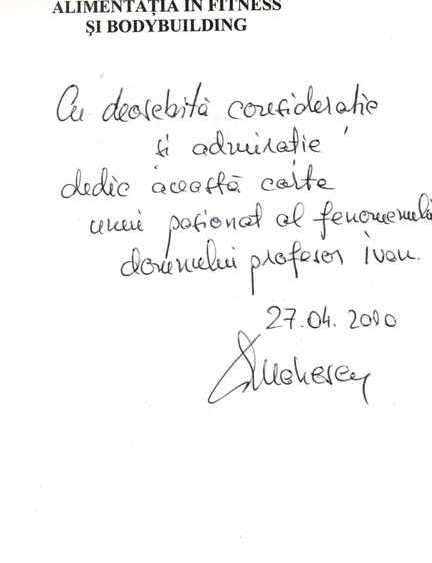 ALIMENTAȚIA ÎN FITNESS
ȘI BODYBUILDING
Cu deosebită considerație
și admirație
dedic această carte
unui pasionat al fenomenului
domnului profesor Ivan.
27.04.2010